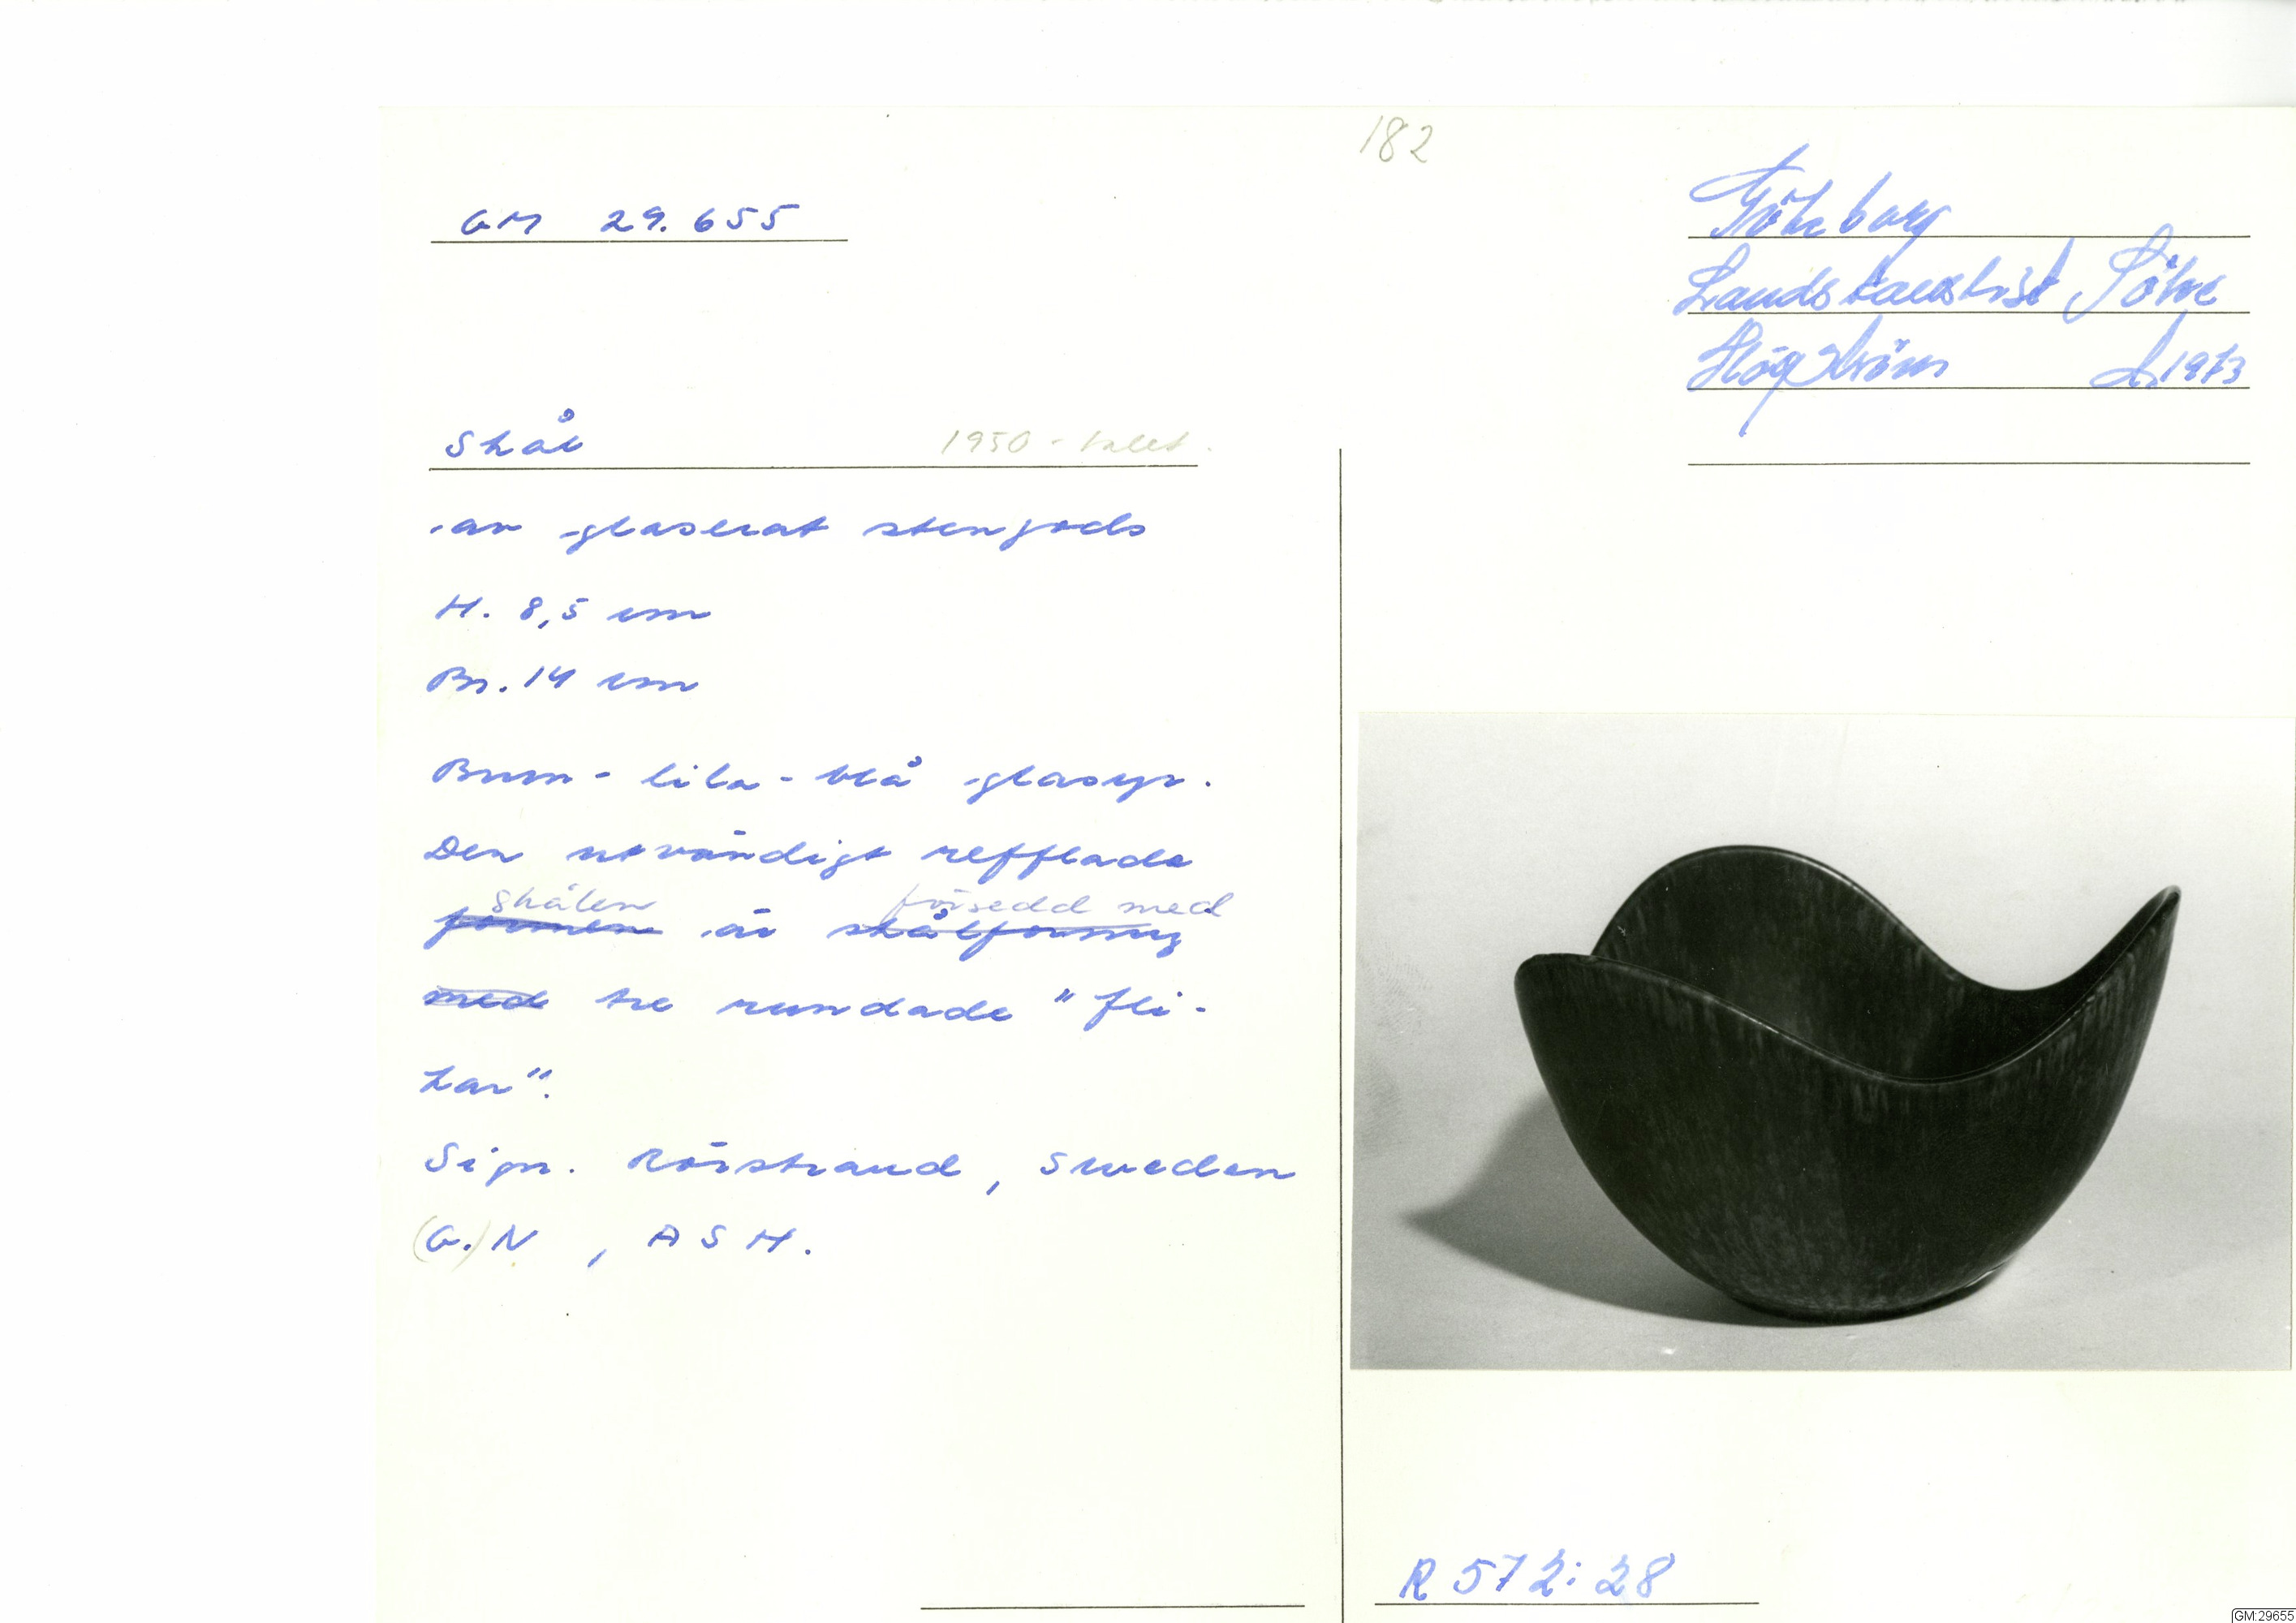 182
GM 29.655
Göteborg
Landskanslist Göhe
Högström d. 1973
Skål 1950-talet.
av glaserat stengods
H. 8,5 cm
Br. 14 cm
Brun-lila-blå glasyr.
Den utvändigt refflade
skålen försedd med
formen är skålformig
med tre rundade "fli-
kar".
Sign. Rörstrand, Sweden
(G.)N, ASH.
R 572:28
GM:29655